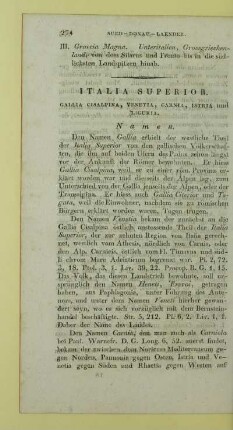 274 SUED-DONAU-LAENDER.
III. Graecia Magna. Unteritalien, Grossgriechen-
land: von dem Silarus und Frento bis in die süd-
lichsten Landspitzen hinab.
ITALIA SUPERIOR.
GALLIA CISALPINA, VENETIA, CARNIA, ISTRIA und
LIGURIA.
Namen.
Den Namen Gallia erhielt der westliche Theil
der Italia Superior von den gallischen Völkerschaf-
ten, die ihn auf beiden Ufern des Padus schon längst
vor der Ankunft der Römer bewohnten. Er hiess
Gallia Cisalpina, weil er zu einer röm. Provinz er-
klärt worden war und diesseit der Alpen lag, zum
Unterschied von der Gallia jenseits der Alpen, oder der
Transalpina. Er hiess auch Gallia Citerior und To-
gata, weil die Einwohner, nachdem sie zu römischen
Bürgern erklärt worden waren, Togen trugen.
Den Namen Venetia bekam der zunächst an die
Gallia Cisalpina östlich anstossende Theil der Italia
Superior, der zur zehnten Region von Italia gerech-
net, westlich vom Athesis, nördlich von Carnia, oder
den Alp. Carnicis, östlich vom Fl. Timavus und süd-
lich vom Mare Adriaticum begrenzt war. Pt. 2, 72.
3, 18. Pml. 3, 1. Liv. 39, 22. Procop. B. G. 1, 15.
Das Volk, das diesen Landstrich bewohnte, soll ur-
sprünglich den Namen Heneti, geführt
haben, aus Paphlagonia, unter Führung des Ante-
nor, und unter dem Namen Veneti hierher gewan-
dert seyn, wo es sich vorzüglich mit dem Bernstein-
handel beschäftigte. Str. 5, 212. Pt. 6, 2. Liv. 1, 1.
Daher der Name des Landes.
Den Namen Carnia, den man auch als Carniola
bei Paul. Warnefr. D. G. Long. 6, 52. zuerst findet,
bekam der zwischen dem Noricum Mediterraneum ge-
gen Norden, Pannonia gegen Osten, Istria und Ve-
netia gegen Süden und Rhaetia gegen Westen auf